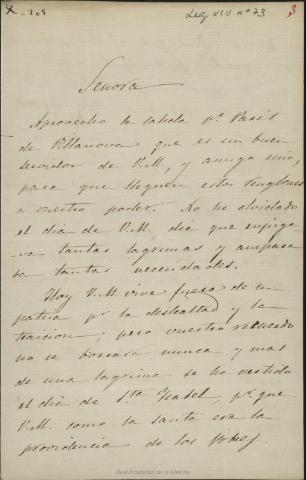 X-208
Leg XIV nº 73
3
Señora
Aprovecho la salida pª Paris
de Villanova que es un buen
servidor de V.M, y amigo mio,
para que lleguen estos renglones
a vuestro poder. No he olvidado
el dia de V.M, dia que enjuga-
-va tantas lagrimas y ampara
ba tantas necesidades.
Hoy V.M. vive fuera de su
patria pr la deslealtad y la
traicion; pero vuestro recuerdo
no se borrara nunca y mas
de una lagrima se ha vertido
el dia de Sta Isabel, pr que
V.M. como la santa era la
providencia de los pobres
Real Academia de la Historia